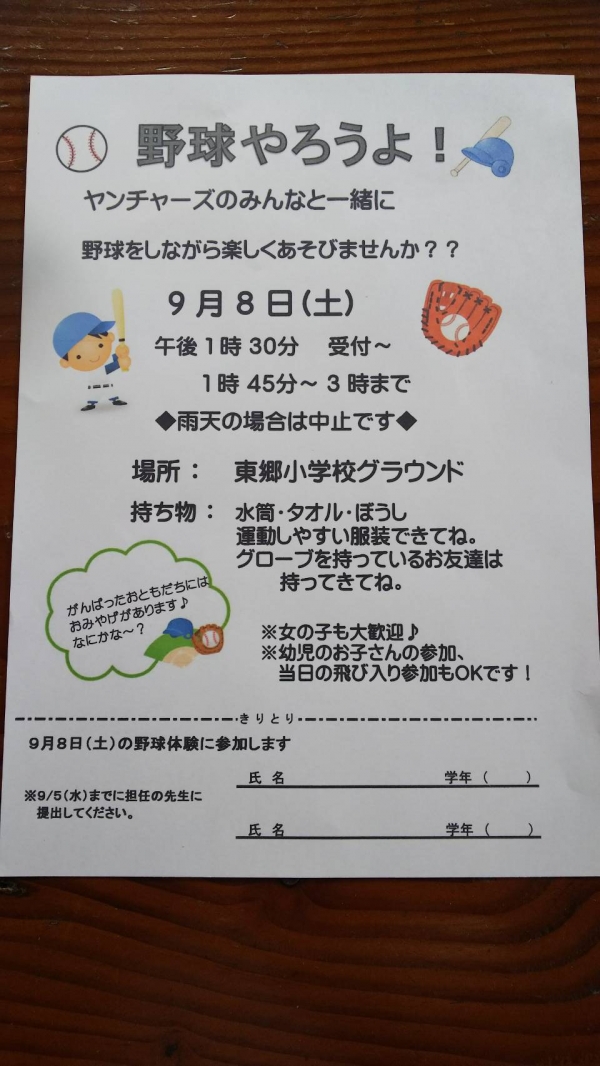 野球やろうよ！
ヤンチャーズのみんなと一緒に
野球をしながら楽しくあそびませんか？？
９月８日（土）
午後１時30分　受付～
１時45分～３時まで
◆雨天の場合は中止です◆
場所：　東郷小学校グラウンド
持ち物：　水筒・タオル・ぼうし
運動しやすい服装できてね。
グローブを持っているお友達は
持ってきてね。
がんばったおともだちには
おみやげがあります♪
なにかな～？
※女の子も大歓迎♪
※幼児のお子さんの参加、
当日の飛び入り参加もOKです！
きりとり
９月８日（土）の野球体験に参加します
氏名　学年（　）
※9/5（水）までに担任の先生に
提出してください。
氏名　学年（　）